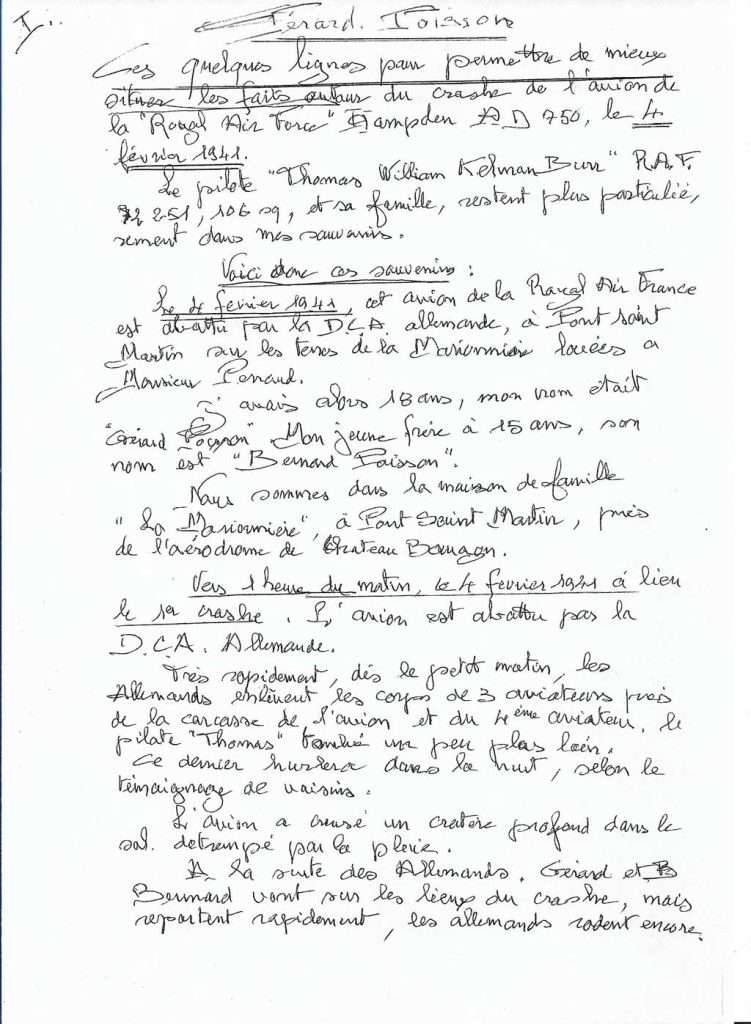 I..
Gérard. Poisson
Ces quelques lignes pour permettre de mieux
situer les faits autour du crashe de l'avion de
la "Royal Air Force" Hampden AD 750, le 4
février 1941.
Le pilote "Thomas William Kelman Burr" R.A.F.
251, 106 09, et sa famille, restent plus particuliè,
rement dans mes souvenirs.
Voici donc ces souvenirs :
Le 4 février 1941, cet avion de la Royal Air France
est abattu par la D.C.A. allemande, à Pont Saint
Martin sur les terres de la Marionnière louées a
Monsieur Penaud.
J'avais alors 18 ans, mon nom était
"Gérard Poisson" Mon jeune frère à 15 ans, son
nom est "Bernard Poisson".
Nous sommes dans la maison de famille
"La Marionnière", à Pont Saint Martin, près
de l'aérodrome de Chateau Bougon.
Vers 1 heure du matin, le 4 février 1941 à lieu
le 1er crashe. L'avion est abattu pas la
D.C.A. Allemande.
Très rapidement, dés le petit matin, les
Allemands enlèvent les corps de 3 aviateurs près
de la carcasse de l'avion et du 4ème aviateur, le
pilote "Thomas" tombé un peu plus loin.
Ce dernier hurlera dans la nuit, selon le
témoignage de voisins.
L'avion a creusé un cratère profond dans le
sol. détrempé par la pluie.
A la suite des Allemands. Gérard et B
Bernard vont sur les lieux du crashe, mais
repartent rapidement, les allemands rodent encore.